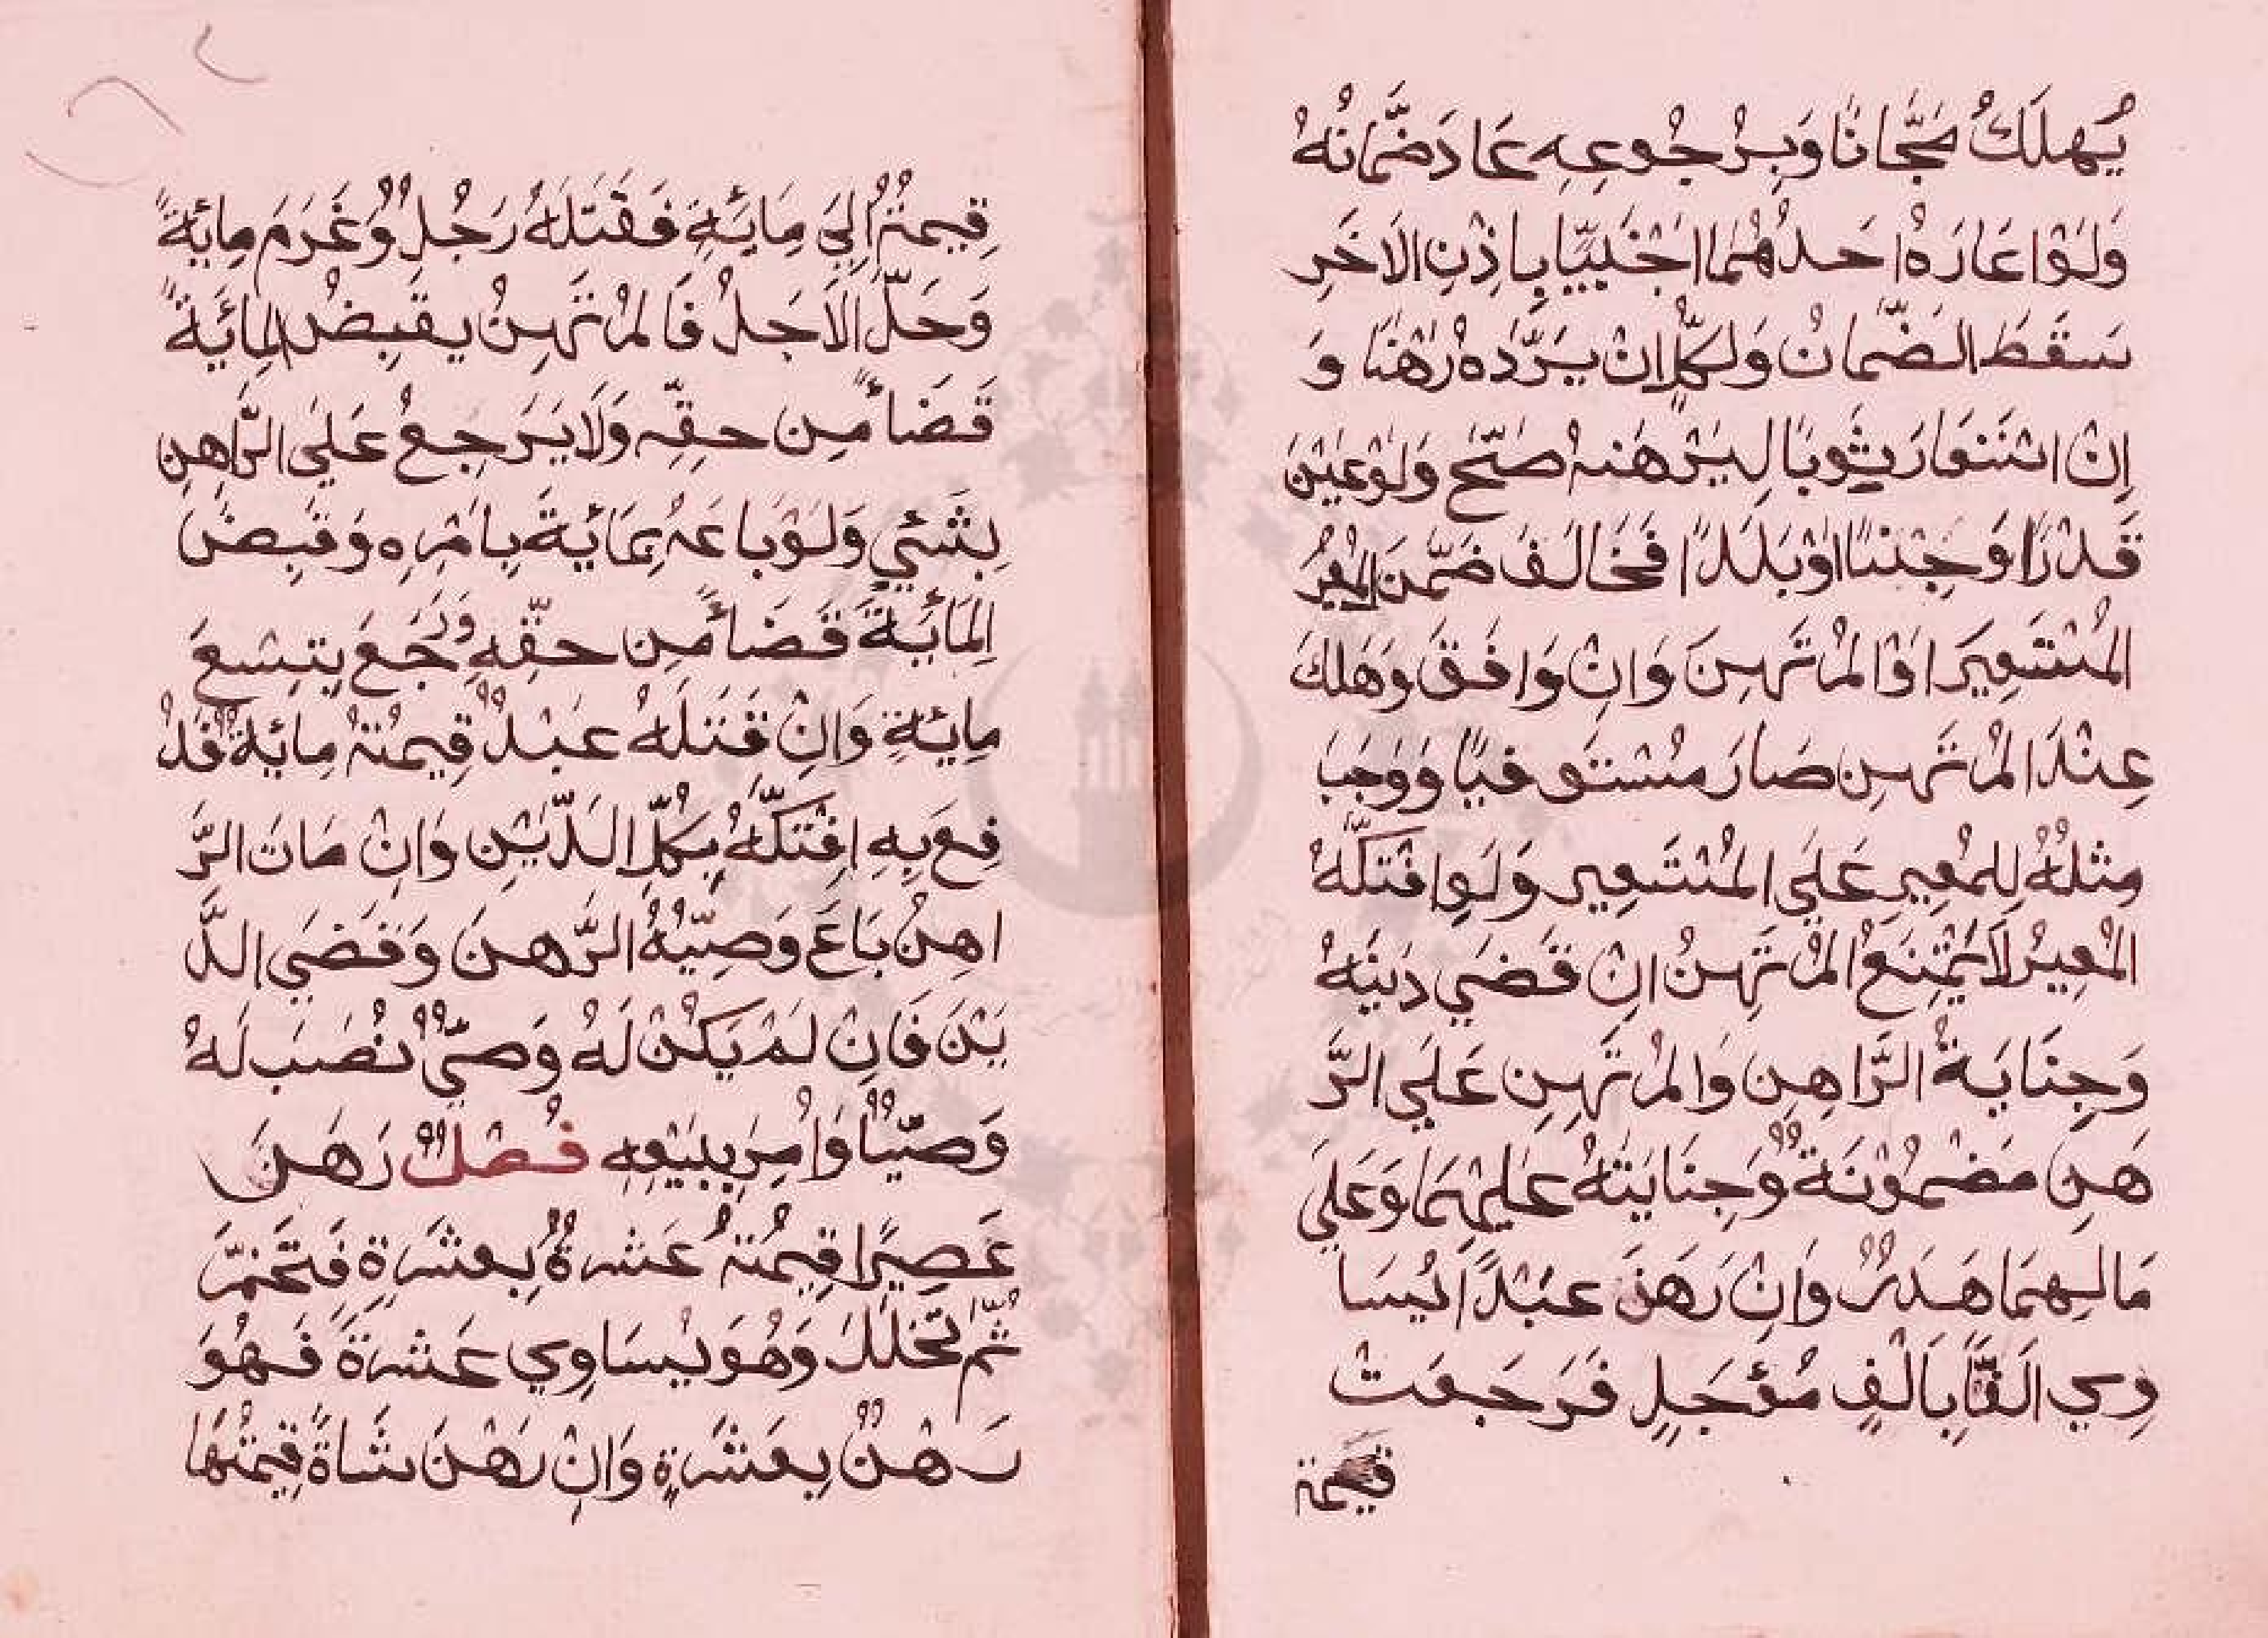 يُهلَكُ مَجَّانًا وَبِرُجُوعِهِ عَادَ ضَمَّانُهُ
وَلَوْ اعَارَهُ احَدُهُمَا اجْنَبِيًّا بِاِذْنِ الاَخَرِ
سَقَطَ الضَّمَانُ وَلِكُلٍّ انْ يَرُّدَهُ رَهْنًا وَ
اِنْ اسْتَعَارَ ثَوبًا لِيَرْهَنهُ صَحَّ وَلَوْ عَيَّنَ
قَدْرًا وَجِنْسًا اَوْ بَلَدًا فَخَالَفَ ضَمَّنَ المُعِيرُ
المُسْتَعِيرَ اوْ المُرْتَهِنَ وَاِنْ وَافَقَ وَهَلَكَ
عِنْدَ المُرْتَهِنِ صَارَ مُسْتَوفيًا وَوَجَبَ
مِثلُهُ لِلمُعِيرِ عَلَي المُسْتَعِيرِ وَلَوِ افْتَكَّهُ
المُعِيرُ لاَ يَمْتَنِعُ المُرْتَهِنُ انْ قَضَي دَيْنَهُ
وَجِنَايَةُ الرَّاهِنِ وَالمُرْتَهِنِ عَلَي الرَّ
هَنِ مَضْمُوْنَةٌ وَجِنَايَتُهُ عَلَيْهِمَا وَعَلَي
مَالِهِمَا هَدَرٌ وَاِنْ رَهَنَ عَبْدًا يُسَا
وِي الَفًا بِاَلْفٍ مُؤَجَلٍ فَرَجَعَتْ
قيمة
قِيمَتُهُ اِلَي مِايَةِ فَقَتَلَهُ رَجُلٌ وَغَرَمَ مِايَةً
وَحَلَّ الاَجَلُ فَالمُرْتَهِنُ يقبِضُ المِايَةَ
قَضَاءً مِن حقِّهِ وَلاَ يَرجِعُ عَلَي الرَّاهِنِ
بِشَيْءٍ وَلَوْ بَاعَهُ بِمَايَةً بِاَمْرِهِ وَقَبِضَ
المِايَةَ قَضَاءً مِن حقِّهِ وَرَجَعَ بِتِسعَ
مِايَةِ وَاِنْ قَتَلَهُ عَبْدٌ قِيمَتُهُ مِايَةٌ فَدُ
فِعَ بِهِ اِفْتَكَّهُ بِكُلِّ الدَّيْنِ وَاِنْ مَاتَ الرَّ
اهِنُ بَاعَ وَصِيُّهُ الرَّهنَ وَقَضَي الدَّ
يْنَ فَاِنْ لَمْ يَكُنْ لَهُ وَصيٌّ نُصَبَ لَهُ
وَصيًّا وَاُمِرَ بِبَيْعِهِ فَصْلٌ رَهَنَ
عَصِيرًا قِيمَتُهُ عَشرَةٌ بِعشَرَةِ فَتَخَمَّرَ
ثُمَّ تَخَلَّلَ وَهُوَ يُسَاوِي عَشرَةَ فَهُوَ
رَهْنٌ بِعَشَرَةٍ وَاِنْ رَهَنَ شَاةً قِيمَتُهَا